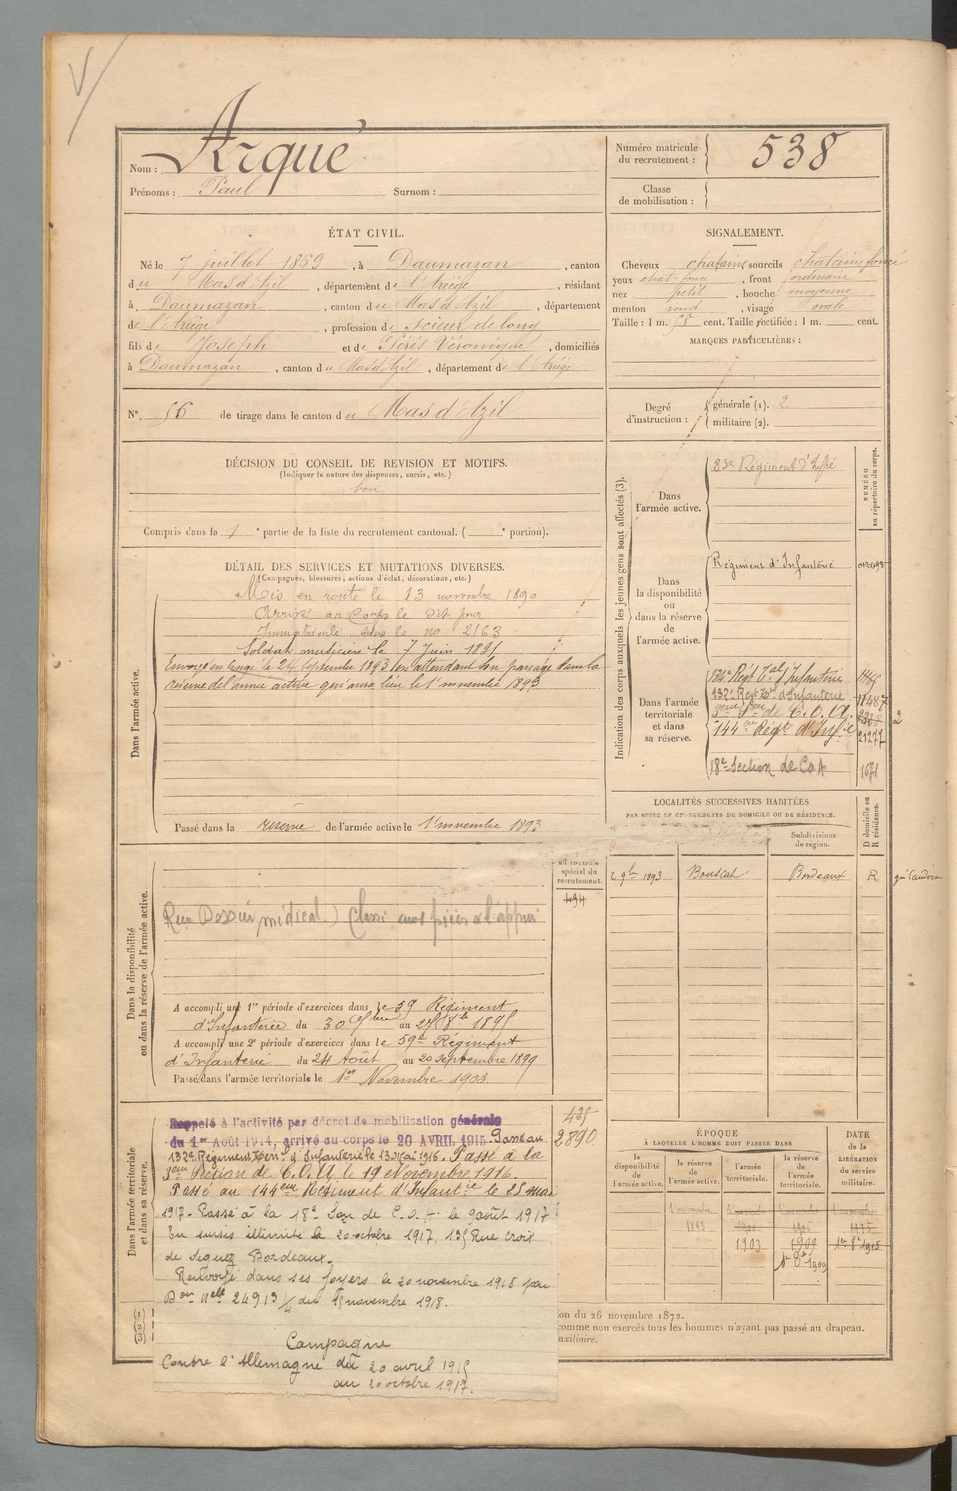 Nom : Arqué
Prénoms : Paul Surnom :
Numéro matricule du recrutement : 538
Classe de mobilisation :
ÉTAT CIVIL.
Né le 7 juillet 1869, à Daumazan, canton
du Mas d'Azil, département de l'Ariège, résidant
à Daumazan, canton du Mas d'Azil, département
de l'Ariège, profession de Scieur de long
fils de Joseph et de Pérès Véronique, domiciliés
à Daumazan, canton du Mas d'Azil, département de l'Ariège
SIGNALEMENT.
Cheveux chatains sourcils chatains foncé
yeux chat. foncé, front ordinaire
nez petit, bouche moyenne
menton rond, visage ovale
Taille : 1 m. cent. Taille rectifiée : 1 m. cent.
MARQUES PARTICULIÈRES :
N° 56 de tirage dans le canton du Mas d'Azil
Degré d'instruction : générale (1). 2
militaire (2).
DÉCISION DU CONSEIL DE REVISION ET MOTIFS.
(Indiquer la nature des dispenses, sursis, etc.)
bon
Compris dans la 1e partie de la liste du recrutement cantonal. ( e portion).
DÉTAIL DES SERVICES ET MUTATIONS DIVERSES.
(Campagnes, blessures, actions d'éclat, décorations, etc.)
Dans l'armée active.
Mis en route le 13 novembre 1890
Arrivé au Corps le dit jour
Immatriculé sous le no 2163
Soldat musicien le 7 Juin 1891
Envoyé en congé le 24 septembre 1893 en attendant son passage dans la
réserve de l'armée active qui aura lieu le 1er novembre 1893
Passé dans la réserve de l'armée active le 1er novembre 1893
Indication des corps auxquels les jeunes gens sont affectés (3).
NUMÉRO au répertoire du corps.
Dans l'armée active.
83e Régiment d'Infie
Dans la disponibilité ou dans la réserve de l'armée active.
Régiment d'Infanterie
Dans l'armée territoriale et dans sa réserve.
134e Régt Tal d'Infanterie
132e Regt Tal d'Infanterie 11487
Son de C.O.A.
144me Régt d'Infie 21277
18e Section de CoA 1671
2
LOCALITÉS SUCCESSIVES HABITÉES
PAR SUITE DE CHANGEMENTS DE DOMICILE OU DE RÉSIDENCE.
Subdivisions de région.
D domicile ou R résidence.
2 9bre 1893 Bouscat Bordeaux R
Dans la disponibilité ou dans la réserve de l'armée active.
N° au contrôle spécial du recrutement.
494
Dossier médical) Classé aux pièces à l'appui
A accompli une 1re période d'exercices dans le 59 Régiment
d'Infanterie du 30 7bre au 27 8bre 1895
A accompli une 2e période d'exercices dans le 59e Régiment
d'Infanterie du 24 Août au 20 Septembre 1899
Passé dans l'armée territoriale le 1er Novembre 1903
Dans l'armée territoriale et dans sa réserve.
435
2890
Rappelé à l'activité par décret de mobilisation générale
du 1er Août 1914, arrivé au corps le 20 AVRIL 1915. Passé au
132e Régiment Terri. d'Infanterie le 13 Mai 1916. Passé à la
3eme Section de C.O.A. le 19 Novembre 1916.
Passé au 144eme Régiment d'Infantie le 25 mai
1917 - Passé à la 18e Son de C.O.A. le 9 août 1917
En sursis illimité le 20 octobre 1917, 135 Rue croix
de Seguey Bordeaux.
Renvoyé dans ses foyers le 20 novembre 1918 par
Don Nelle 24913 1/4 du 15 novembre 1918.
Campagne
Contre l'Allemagne du 20 avril 1915
au 20 octobre 1917.
ÉPOQUE
À LAQUELLE L'HOMME DOIT PASSER DANS
la disponibilité de l'armée active.
la réserve de l'armée active.
l'armée territoriale.
la réserve de l'armée territoriale.
DATE de la LIBÉRATION du service militaire.
1 novembre 1893
1903
1909
1er 8bre 1909
1er 8bre 1915
(1)
(2)
(3)
on du 26 novembre 1872.
comme non exercés tous les hommes n'ayant pas passé au drapeau.
auxiliaire.